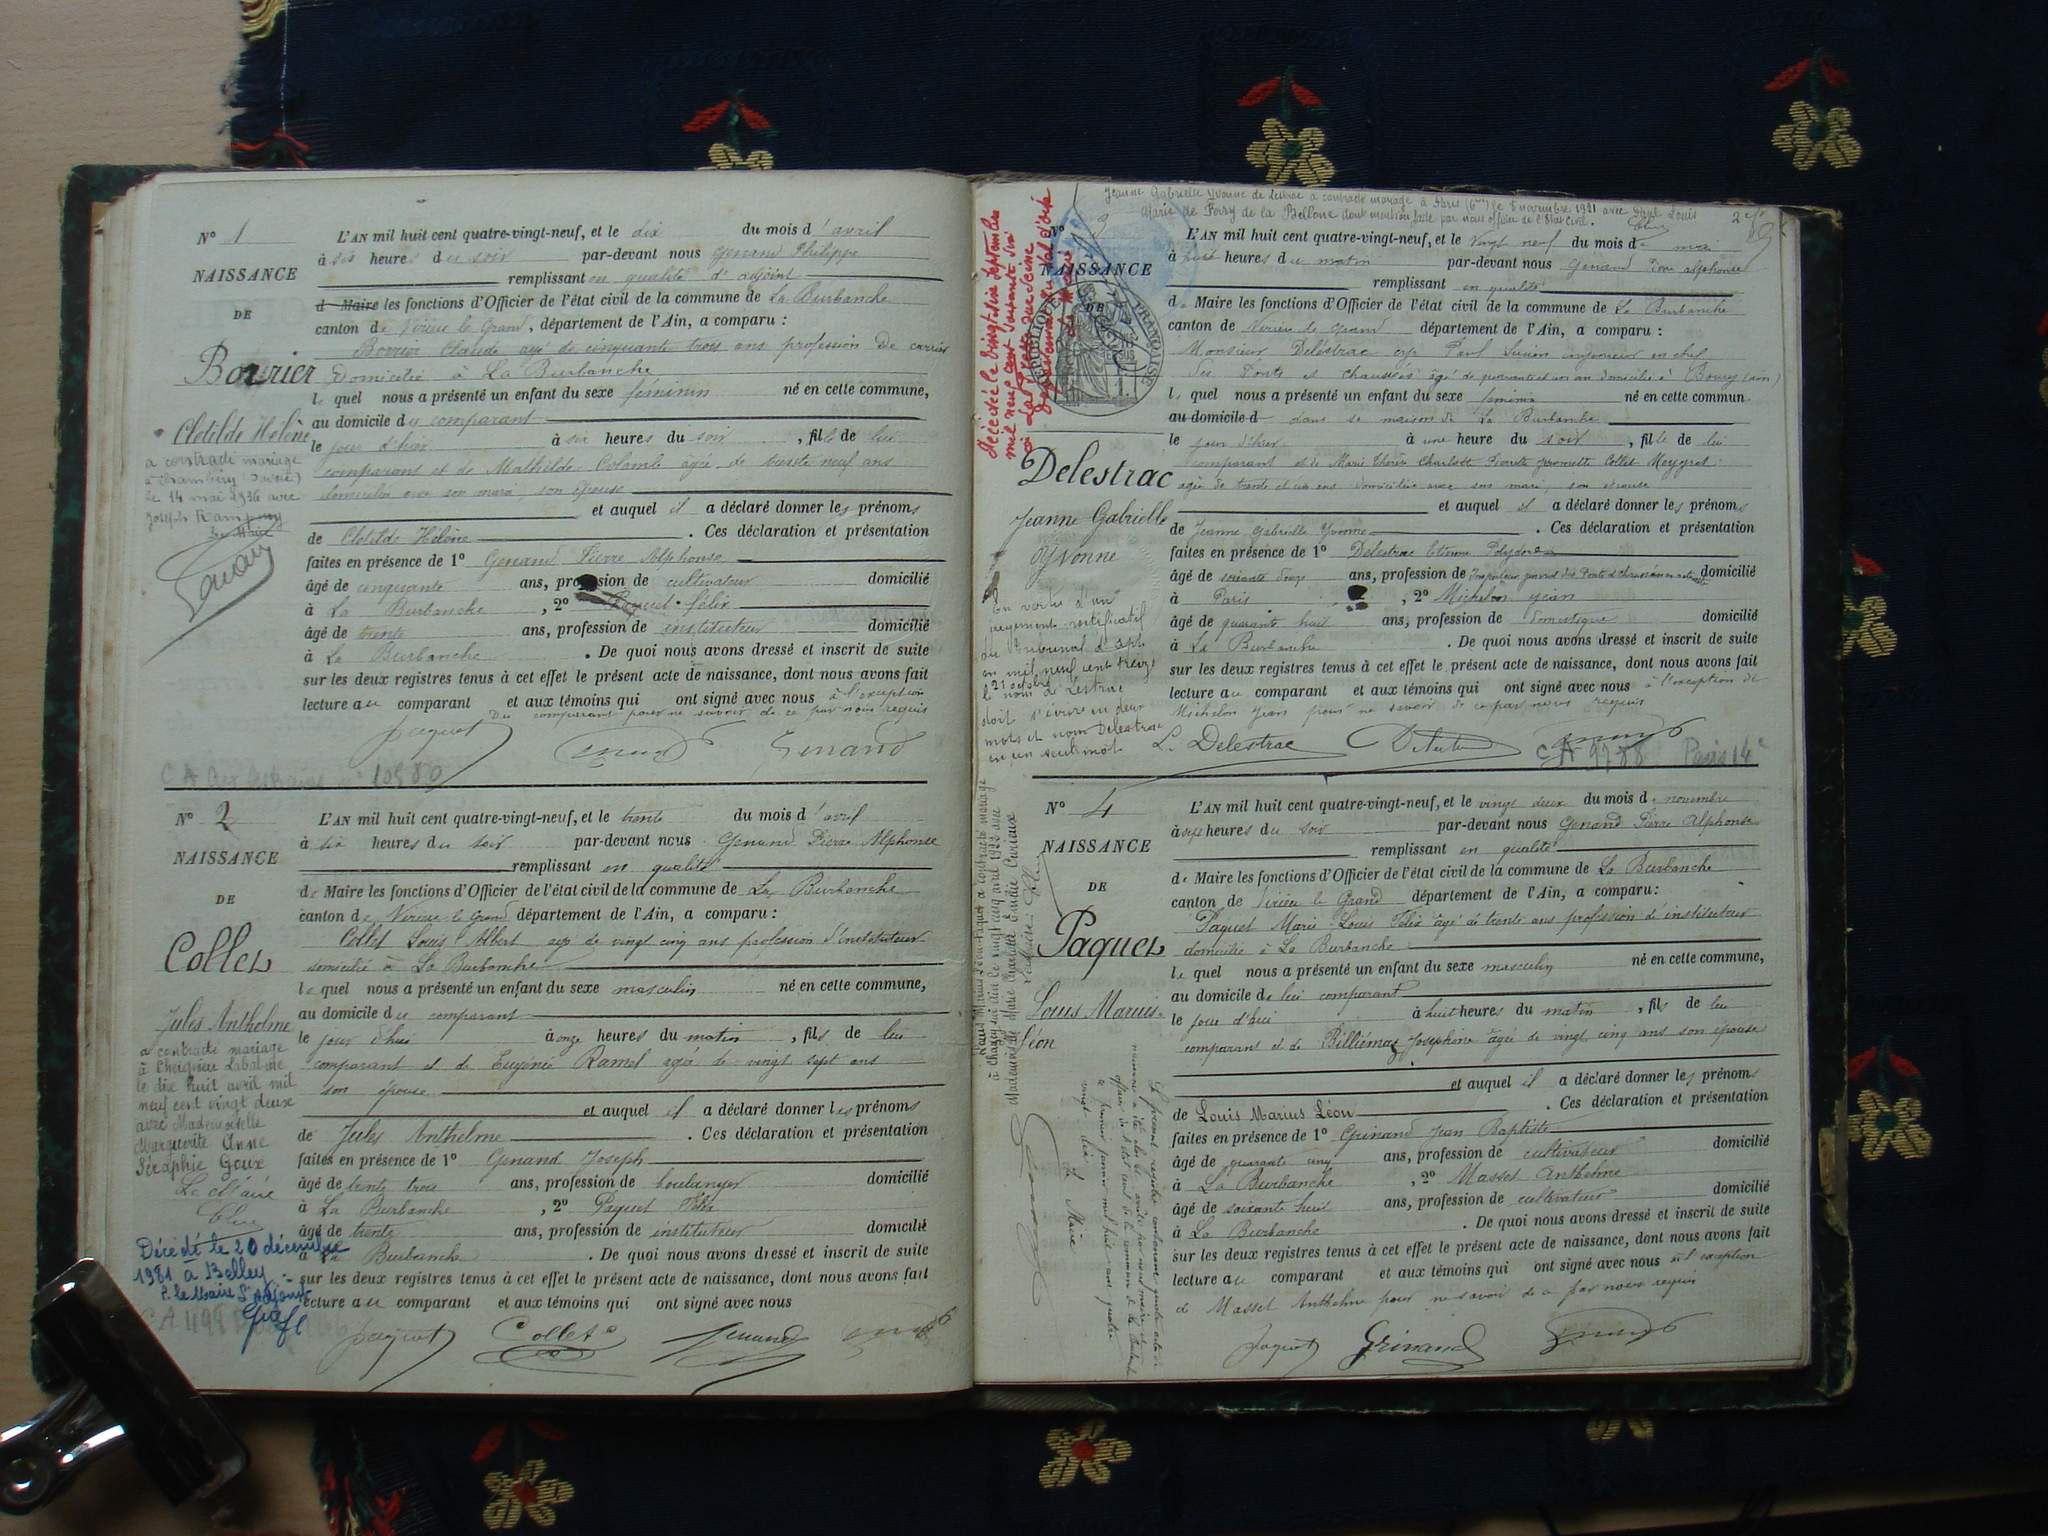 N° 1
NAISSANCE
DE
Bovrier
Clotilde Hélène
a contracté mariage
à Chambéry (Savoie)
le 14 mai 1936 avec
Joseph
Le Maire
L'AN mil huit cent quatre-vingt-neuf, et le dix du mois d'avril
à six heures du soir par-devant nous Genand Philippe
remplissant en qualité d'adjoint
d Maire les fonctions d'Officier de l'état civil de la commune de La Burbanche
canton de Virieu le Grand, département de l'Ain, a comparu :
Bovrier Claude agé de cinquante trois ans profession De carrier
Domicilié à La Burbanche
lequel nous a présenté un enfant du sexe féminin né en cette commune,
au domicile du comparant
le jour d'hier à six heures du soir, fille de lui
comparant et de Mathilde Colomb âgée de trente neuf ans
domiciliée avec son mari, son épouse
et auquel il a déclaré donner les prénoms
de Clotilde Hélène. Ces déclaration et présentation
faites en présence de 1° Genand Pierre Alphonse
âgé de cinquante ans, profession de cultivateur domicilié
à La Burbanche, 2° Paquet félix
âgé de trente ans, profession de instituteur domicilié
à La Burbanche. De quoi nous avons dressé et inscrit de suite
sur les deux registres tenus à cet effet le présent acte de naissance, dont nous avons fait
lecture au comparant et aux témoins qui ont signé avec nous à l'exception
Du comparant pour ne savoir de ce par nous requis
Paquet Genand
10580
N° 2
NAISSANCE
DE
Collet
Jules Anthelme
a contracté mariage
à Cheignieu Labalme
le dix huit avril mil
neuf cent vingt deux
avec Mademoiselle
Marguerite Anne
Séraphie Goux
Le Maire
Décédé le 20 décembre
1981 à Belley
P. le Maire L'Adjoint
L'AN mil huit cent quatre-vingt-neuf, et le trente du mois d'avril
à six heures du soir par-devant nous Genand Pierre Alphonse
remplissant en qualité
de Maire les fonctions d'Officier de l'état civil de la commune de La Burbanche
canton de Virieu le Grand département de l'Ain, a comparu :
Collet Louis Albert agé de vingt cinq ans profession d'instituteur
domicilié à La Burbanche
lequel nous a présenté un enfant du sexe masculin né en cette commune,
au domicile du comparant
le jour d'hui à onze heures du matin, fils de lui
comparant et de Eugénie Ramel agée de vingt sept ans
son épouse
et auquel il a déclaré donner les prénoms
de Jules Anthelme. Ces déclaration et présentation
faites en présence de 1° Genand Joseph
âgé de trente trois ans, profession de boulanger domicilié
à La Burbanche, 2° Paquet Félix
âgé de trente ans, profession de instituteur domicilié
à La Burbanche. De quoi nous avons dressé et inscrit de suite
sur les deux registres tenus à cet effet le présent acte de naissance, dont nous avons fait
lecture au comparant et aux témoins qui ont signé avec nous
Paquet Collet Genand
Jeanne Gabrielle Yvonne de Lestrac a contracté mariage à Paris (6me) le 5 novembre 1921 avec Louis
Marie de Ferry de la Bellone dont mention faite par nous officier de l'Etat Civil.
N° 3
NAISSANCE
DE
RÉPUBLIQUE FRANÇAISE
Décédée le vingt-six septembre
mil neuf cent soixante six
Delestrac
Jeanne Gabrielle
Yvonne
En vertu d'un
jugement rectificatif
du Tribunal d'Apt
en mil neuf cent treize
le 21 octobre
nom de Lestrac
doit s'écrire en deux
mots et non Delestrac
en un seul mot
L'AN mil huit cent quatre-vingt-neuf, et le vingt neuf du mois de mai
à heures du matin par-devant nous Genand Pierre alphonse
remplissant en qualité
de Maire les fonctions d'Officier de l'état civil de la commune de La Burbanche
canton de Virieu le Grand département de l'Ain, a comparu :
Monsieur Delestrac Paul Lucien ingénieur en chef
des Ponts et Chaussées âgé de quarante et un an domicilié à Bourg (ain)
lequel nous a présenté un enfant du sexe féminin né en cette commun
au domicile d dans sa maison de La Burbanche
le jour d'hier à une heure du soir, fille de lui
comparant et de Marie Thérèse Charlotte Collet Meygret
agée de trente et un ans domiciliée avec son mari, son épouse
et auquel il a déclaré donner les prénoms
de Jeanne Gabrielle Yvonne. Ces déclaration et présentation
faites en présence de 1° Delestrac Etienne Polydore
âgé de soixante douze ans, profession de Inspecteur général des Ponts et Chaussées en retraite domicilié
à Paris, 2° Michelon jean
âgé de quarante huit ans, profession de Domestique domicilié
à La Burbanche. De quoi nous avons dressé et inscrit de suite
sur les deux registres tenus à cet effet le présent acte de naissance, dont nous avons fait
lecture au comparant et aux témoins qui ont signé avec nous à l'exception de
Michelon jean pour ne savoir de ce par nous requis
L. Delestrac
CA 9788 Paris 14e
N° 4
NAISSANCE
DE
Paquet
Louis Marius
Léon
Louis Marius Léon Paquet a contracté mariage
à ain le vingt cinq avril 1922 avec
Mademoiselle Marie
Le présent registre contenant quatre actes de
naissance a été clos et arrêté par nous maire et
officier de l'état civil de la commune de La Burbanche
le premier janvier mil huit cent quatre
vingt dix Le Maire
L'AN mil huit cent quatre-vingt-neuf, et le vingt deux du mois de novembre
à sept heures du soir par-devant nous Genand Pierre Alphonse
remplissant en qualité
de Maire les fonctions d'Officier de l'état civil de la commune de La Burbanche
canton de Virieu le Grand département de l'Ain, a comparu :
Paquet Marie Louis Félix âgé de trente ans profession d'instituteur
domicilié à La Burbanche
lequel nous a présenté un enfant du sexe masculin né en cette commune,
au domicile de lui comparant
le jour d'hui à huit heures du matin, fils de lui
comparant et de Billiémaz Joséphine âgée de vingt cinq ans son épouse
et auquel il a déclaré donner les prénoms
de Louis Marius Léon. Ces déclaration et présentation
faites en présence de 1° Grinand Jean Baptiste
âgé de quarante cinq ans, profession de cultivateur domicilié
à La Burbanche, 2° Masset Anthelme
âgé de soixante huit ans, profession de cultivateur domicilié
à La Burbanche. De quoi nous avons dressé et inscrit de suite
sur les deux registres tenus à cet effet le présent acte de naissance, dont nous avons fait
lecture au comparant et aux témoins qui ont signé avec nous à l'exception
de Masset Anthelme pour ne savoir de ce par nous requis
Paquet Grinand